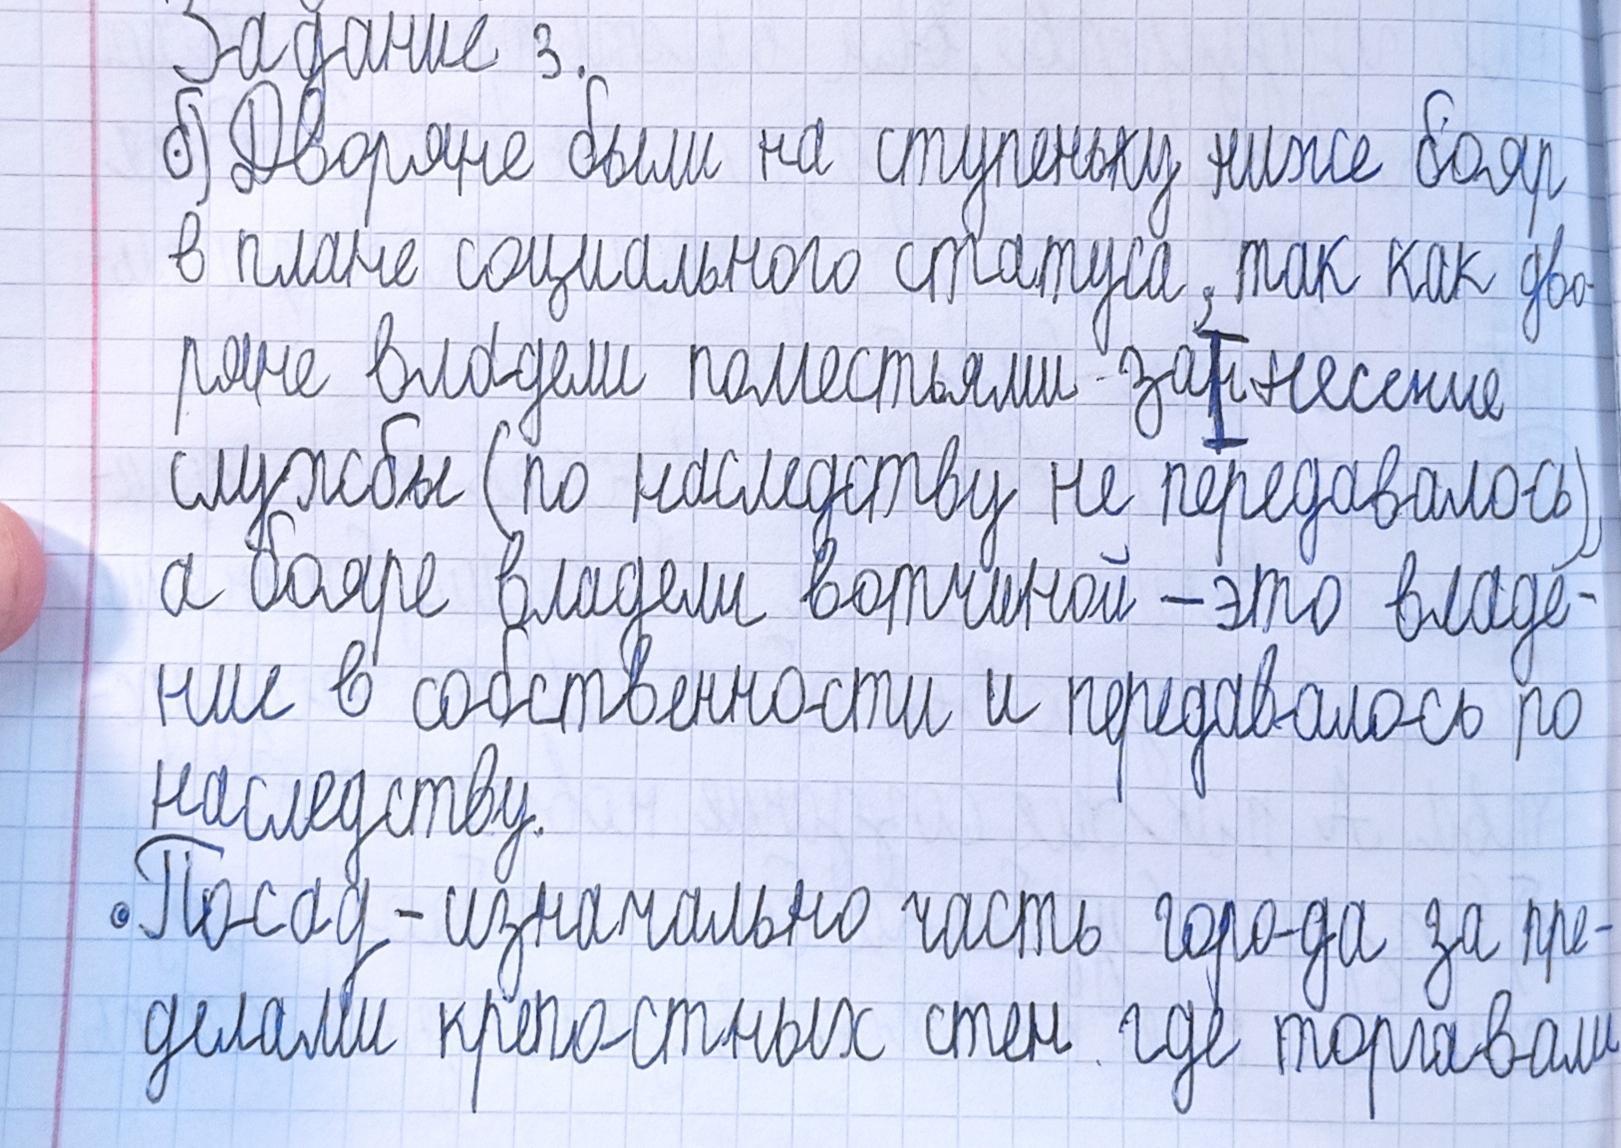 Задание 3.
б) Дворяне были на ступеньку ниже бояр
в плане социального статуса, так как дво-
ряне владели поместьями - за несение
службы (по наследству не передавалось),
а бояре владели вотчиной - это владе-
ние в собственности и передавалось по
наследству.
• Посад - изначально часть города за пре-
делами крепостных стен где торгавали